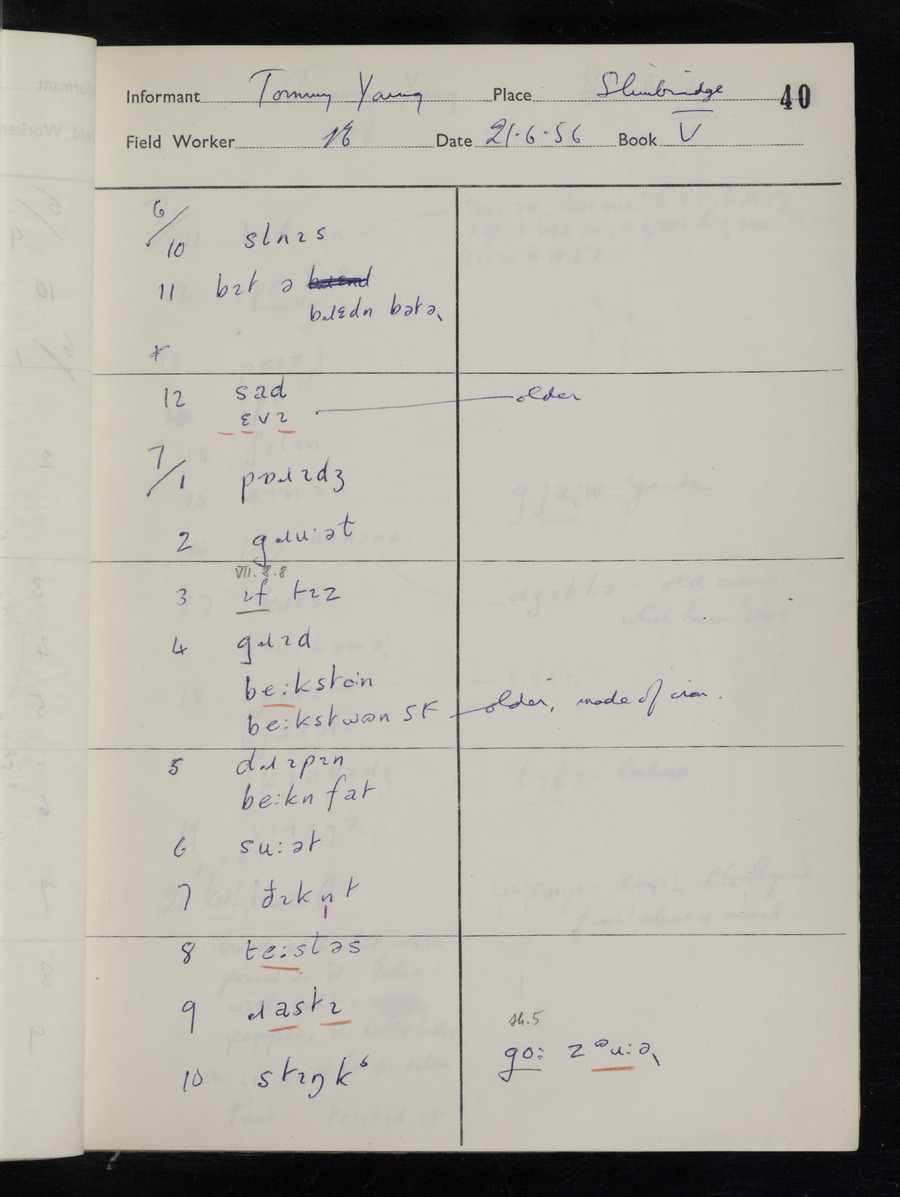 Informant Tommy Young Place Slimbridge 40
Field Worker Date 21·6·56 Book V
6/10 slɪɪs
11 bɪt ə
bɹɛdn bətə˞
*
12 sad
ɛvɪ older
7/1 pɒɹɪdʒ
2 gɹuːət
VII.8.8
3 ɪf tɪz
4 gɹɪd
beːkstoːn
beːkstwɒn SF older, made of iron.
5 dɹɪpɪn
beːkn fat
6 suːət
7 ðɪknt
8 teːstləs
9 ɹastɪ
sh. 5
10 stɪŋk⁶ goː zᵊuːə˞